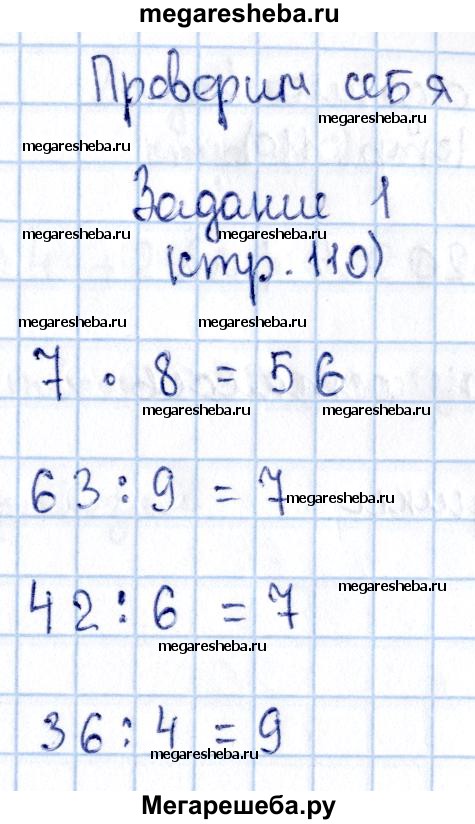 megaresheba.ru
Проверим себя
megaresheba.ru
megaresheba.ru
Задание 1
megaresheba.ru
megaresheba.ru
(стр. 110)
megaresheba.ru
megaresheba.ru
7 · 8 = 56
megaresheba.ru
63 : 9 = 7
megaresheba.ru
megaresheba.ru
42 : 6 = 7
megaresheba.ru
36 : 4 = 9
megaresheba.ru
Мегарешеба.ру